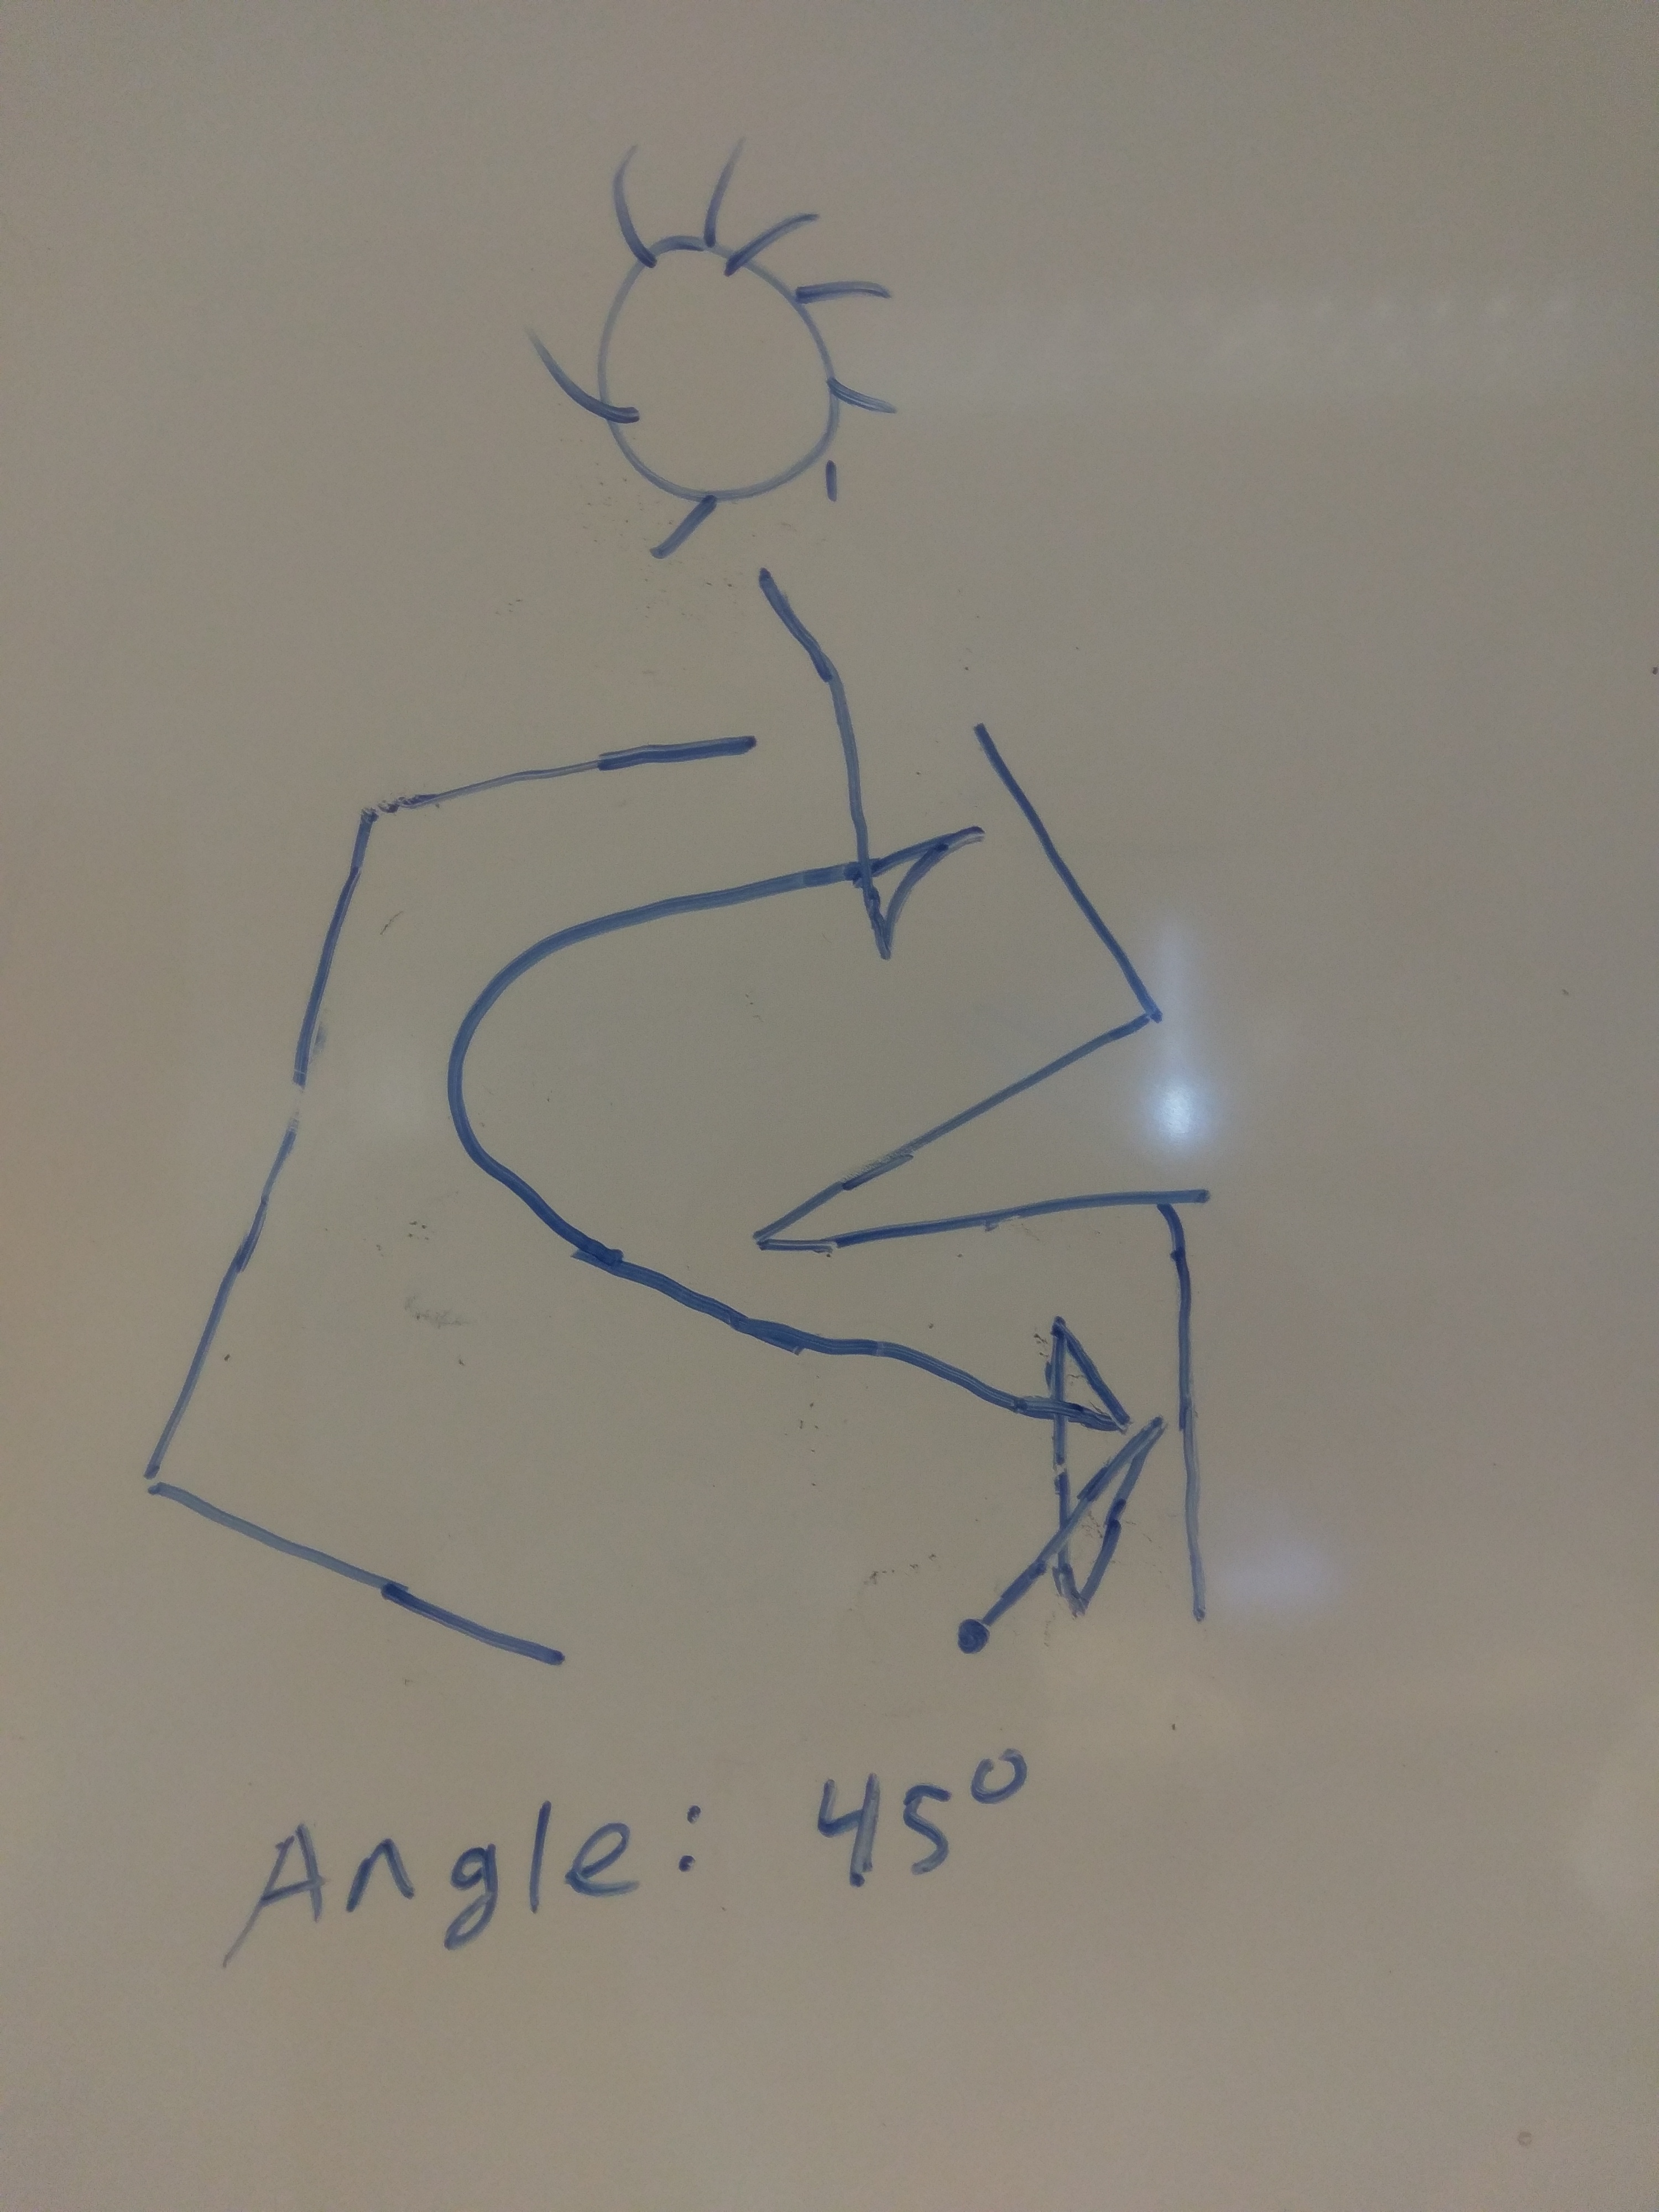 Angle: 45°